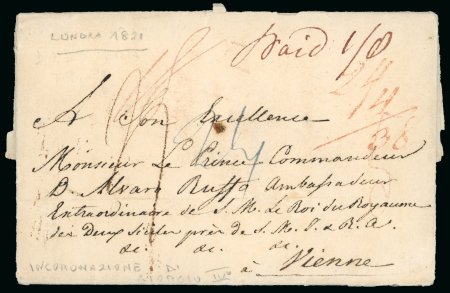 LONDRA 1821
Paid 1/8
24
14
38
A Son Excellence
Monsieur Le Prince Commandeur
D. Alvaro Ruffo Ambassadeur
Extraordinaire de S. M. le Roi du Royaume
des Deux Siciles près de S. M. I. & R. A.
&c. &c. &c.
à Vienne
INCORONAZIONE DI
GIORGIO IV